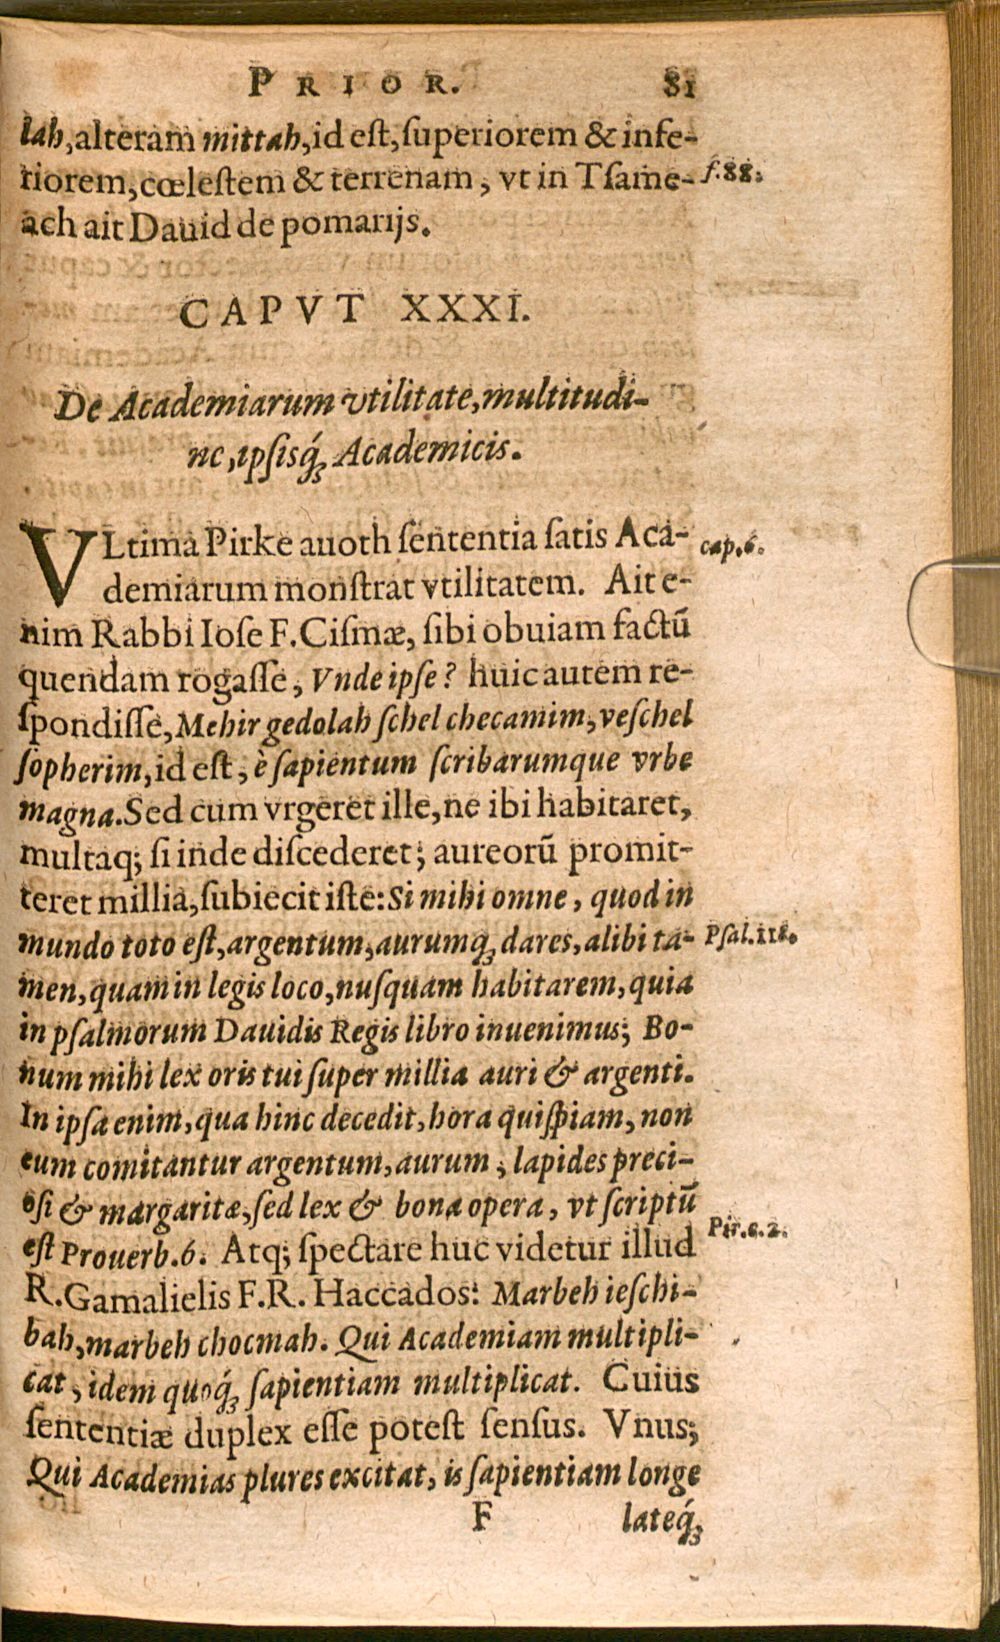 PRIOR. 81
lah, alteram mittah, id eſt, ſuperiorem & infe-
riorem, cœleſtem & terrenam, vt in Tſame- f.88.
ach ait Dauid de pomarijs.
CAPVT XXXI.
De Academiarum vtilitate, multitudi-
ne, ipsisq́ꝫ Academicis.
VLtima Pirke auoth ſententia ſatis Aca- cap.6.
demiarum monſtrat vtilitatem. Ait e-
nim Rabbi Ioſe F. Ciſmæ, ſibi obuiam factũ
quendam rogaſſe, Vnde ipſe? huic autem re-
ſpondiſſe, Mehir gedolah ſchel checamim, veſchel
ſopherim, id eſt, è ſapientum ſcribarumque vrbe
magna. Sed cum vrgeret ille, ne ibi habitaret,
multaq; ſi inde diſcederet; aureorũ promit-
teret millia, ſubiecit iſte: Si mihi omne, quod in
mundo toto eſt, argentum, aurumq́ꝫ dares, alibi ta- Pſal.118.
men, quam in legis loco, nuſquam habitarem, quia
in pſalmorum Dauidis Regis libro inuenimus; Bo-
num mihi lex oris tui ſuper millia auri & argenti.
In ipſa enim, qua hinc decedit, hora quiſpiam, non
eum comitantur argentum, aurum, lapides preci-
oſi & margaritæ, ſed lex & bona opera, vt ſcriptũ
eſt Prouerb.6. Atq; ſpectare huc videtur illud Pir.c.2.
R. Gamalielis F.R. Haccados: Marbeh ieſchi-
bah, marbeh chocmah. Qui Academiam multipli-
cat, idem quoq́ꝫ ſapientiam multiplicat. Cuius
ſententiæ duplex eſſe poteſt ſenſus. Vnus;
Qui Academias plures excitat, is ſapientiam longe
F lateq́ꝫ